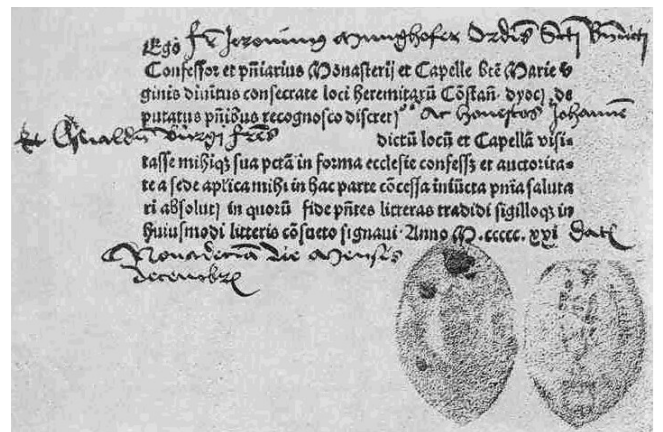 Ego fr Jeronimg Munghofer Ordis Scti Bndicti
Confessor et pñiarius Monasterij et Capelle btē Marie v
ginis diuinitus consecrate loci heremitarū Cōstañ. dyocꝭ de
putatus pñibus recognosco discretꝭ Ac honestos Johannē
Et Oswaldū Bürgi frēs dictū locū et Capellā visi⸗
tasse mihiqꝫ sua pctā in forma ecclesie confessꝭ et auctorita⸗
te a sede aplica mihi in hac parte cōcessa iniūcta pnia saluta
ri absolutꝭ in quorū fide pñtes litteras tradidi sigilloqꝫ in
huiusmodi litteris cōsueto signaui. Anno M.ccccc.xxi datꝭ
die Mensis
decembrꝭ